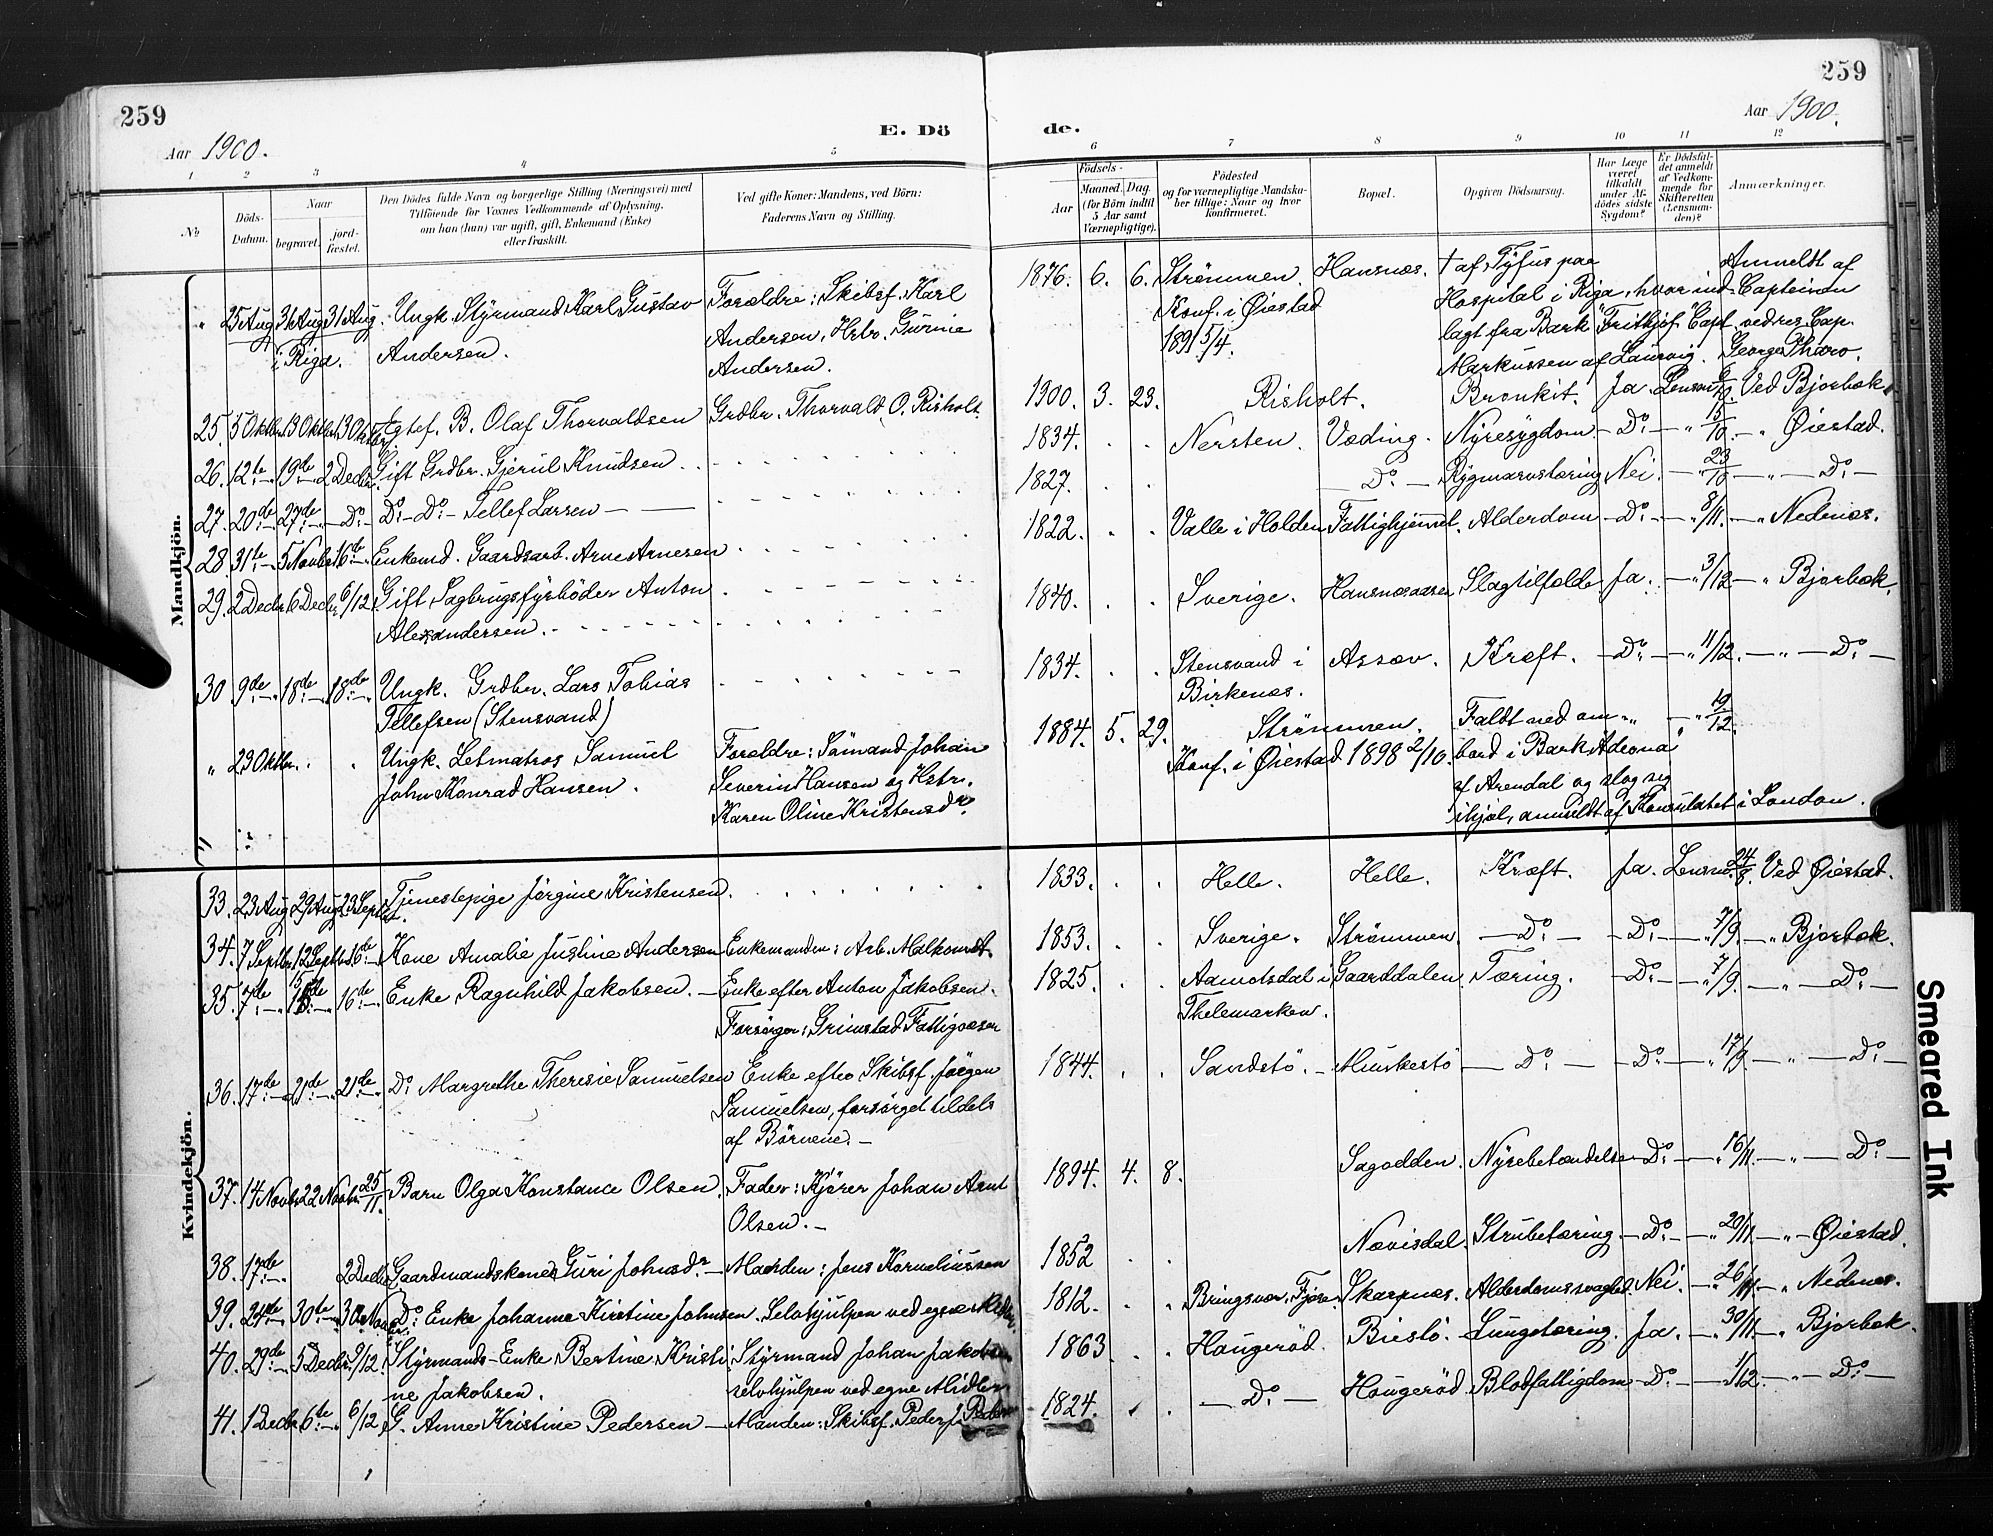 259
Aar 1900.
E. Dö
1 2 3 4 5
No
Döds-
Datum.
Naar
begravet.
jord-
fæstet.
Den Dödes fulde Navn og borgerlige Stilling (Næringsvei) med
Tilföiende for Voxnes Vedkommende af Oplysning,
om han (hun) var ugift, gift, Enkemand (Enke)
eller fraskilt.
Ved gifte Koner: Mandens, ved Börn:
Faderens Navn og Stilling.
Mandkjön.
" 25 Aug 31 Aug 31 Aug. Ungk. Styrmand Karl Gustav Forældre: Skibsf. Karl
i Riga. Andersen. Andersen. Hstr. Gurine
Andersen.
25. 5 Oktbr. 13 Oktbr 13 Oktbr. Ægtef. B. Olaf Thorvaldsen Grdbr. Thorvald O. Risholt.
26. 12te 19de 2 Decbr. Gift Grdbr. Gjerul Knudsen.
27. 20de 27de Do Do Do Tellef Larsen
28. 31te 5 Novbr 16de Enkemd. Gaardsarb. Arne Arnesen
29. 2 Decbr. 6 Decbr. 6/12 Gift Sagbrugsfyrböder Anton
Alexandersen.
30 9de 18de 18de Ungk. Grdbr. Lars Tobias
Tellefsen (Stensvand)
" 23 Oktbr. Ungk. Letmatros Samuel Forældre: Sömand Johan
John Konrad Hansen. Severin Hansen og Hstr.
Karen Oline Kristensdr.
Kvindekjön.
33. 23 Aug 29 Aug 23 Septbr. Tjenestepige Jörgine Kristensen.
34. 7 Septbr. 12 Septbr. 16de Kone Amalie Justine Andersen Enkemanden: Arb. Malkom A.
35. 7de 15de 16de Enke Ragnhild Jakobsen. Enke efter Anton Jakobsen.
Forsörges: Grimstad Fattigvæsen
36. 17de 21de 21de Do Margrethe Theresie Samuelsen Enke efter Skibsf. Jörgen
Samuelsen, forsörget tildels
af Börnene.
37. 14 Novbr. 22 Novbr. 25/11. Barn Olga Konstance Olsen. Fader: Kjörer Johan Arnt
Olsen.
38. 17de 2 Decbr. Gaardmandskone Guri Johnsdr. Manden: Jens Korneliussen
39. 24de 30te 30 Novbr. Do Enke Johanne Kirstine Johnsen. Selvhjulpen ved egne Midler.
40. 29de 5 Decbr. 9/12 Styrmands-Enke Bertine Kristi- Styrmand Johan Jakobsen
ne Jakobsen. selvhjulpen ved egne Midler
41. 1 Decbr 6te 6/12 G. Anne Kristine Pedersen Manden: Skibsf. Peder J. Pedersen
259
Aar 1900.
de.
6 7 8 9 10 11 12
Födsels-
Aar
Maaned. Dag.
(for Börn indtil
5 Aar samt
Værnepligtige).
Födested
og for værnepligtige Mandska-
ber tillige: Naar og hvor
konfirmeret.
Bopæl.
Opgiven Dödsaarsag.
Har Læge
været
tilkaldt
under Af-
dödes sidste
Sygdom?
Er Dödsfal-
det anmeldt
af Vedkom-
mende for
Skifteretten
(Lensman-
den)?
Anmærkninger.
1876. 6. 6. Strömmen. Hansnæs. † af Tyfus paa Anmeldt af
Konf. i Öiestad Hospital i Riga, hvor ind- Capteinen
1891 5/4. lagt fra Bark "Fritkjof" Capt. ved res. Cap.
Markussen af Laurvig. George Tharo.
1900. 3. 23. Risholt. Bronkit. Ja. Lensm. 6/10 Ved Bjorbæk.
1834. Nersten. Væding. Nyresygdom. Do " 15/10 " Öiestad.
1827. Do Rygmarvstæring Nei. " 23/10 " Do
1822. Valle i Holden Fattighjemmet. Alderdom Do " 8/11. " Nedenæs.
1840. Sverige. Hansnæsaasen Slagtilfælde Ja. " 3/12 " Bjorbæk.
1834. Stensvand i Assæv. Kræft. Do " 11/12. " Do
Birkenæs.
1884. 5. 29. Strömmen. Faldt ned om " " 19/12.
Konf. i Öiestad 1898 2/10. bord i Bark Adeona
af Arendal og slog sig
ihjel, anmeldt af Konsulatet i London.
1833. Helle. Helle. Kræft. Ja. Lensm. 24/8. Ved Öiestad.
1853. Sverige. Strömmen. Do Do " 7/9. " Bjorbæk.
1825. Aamotsdal i Gaarddalen. Tæring. Do " 7/9. " Do
Thelemarken.
1844. Sandstö. Muskestö Do Do " 17/9. " Do
1894. 4. 8. Sagodden. Nyrebetændelse Do " 16/11. " Do
1852 Nævisdal. Strubetæring Do " 20/11. " Öiestad.
1812. Bringsvær, Fjære Skarpnæs. Alderdomssvaghed. Nei. " 26/11 " Nedenæs.
1863 Haugeröd. Biestö. Lungetæring. Ja. " 30/11. " Bjorbæk.
1824. Do Haugeröd Blodfattigdom Do 1/12. " Do
Smeared Ink